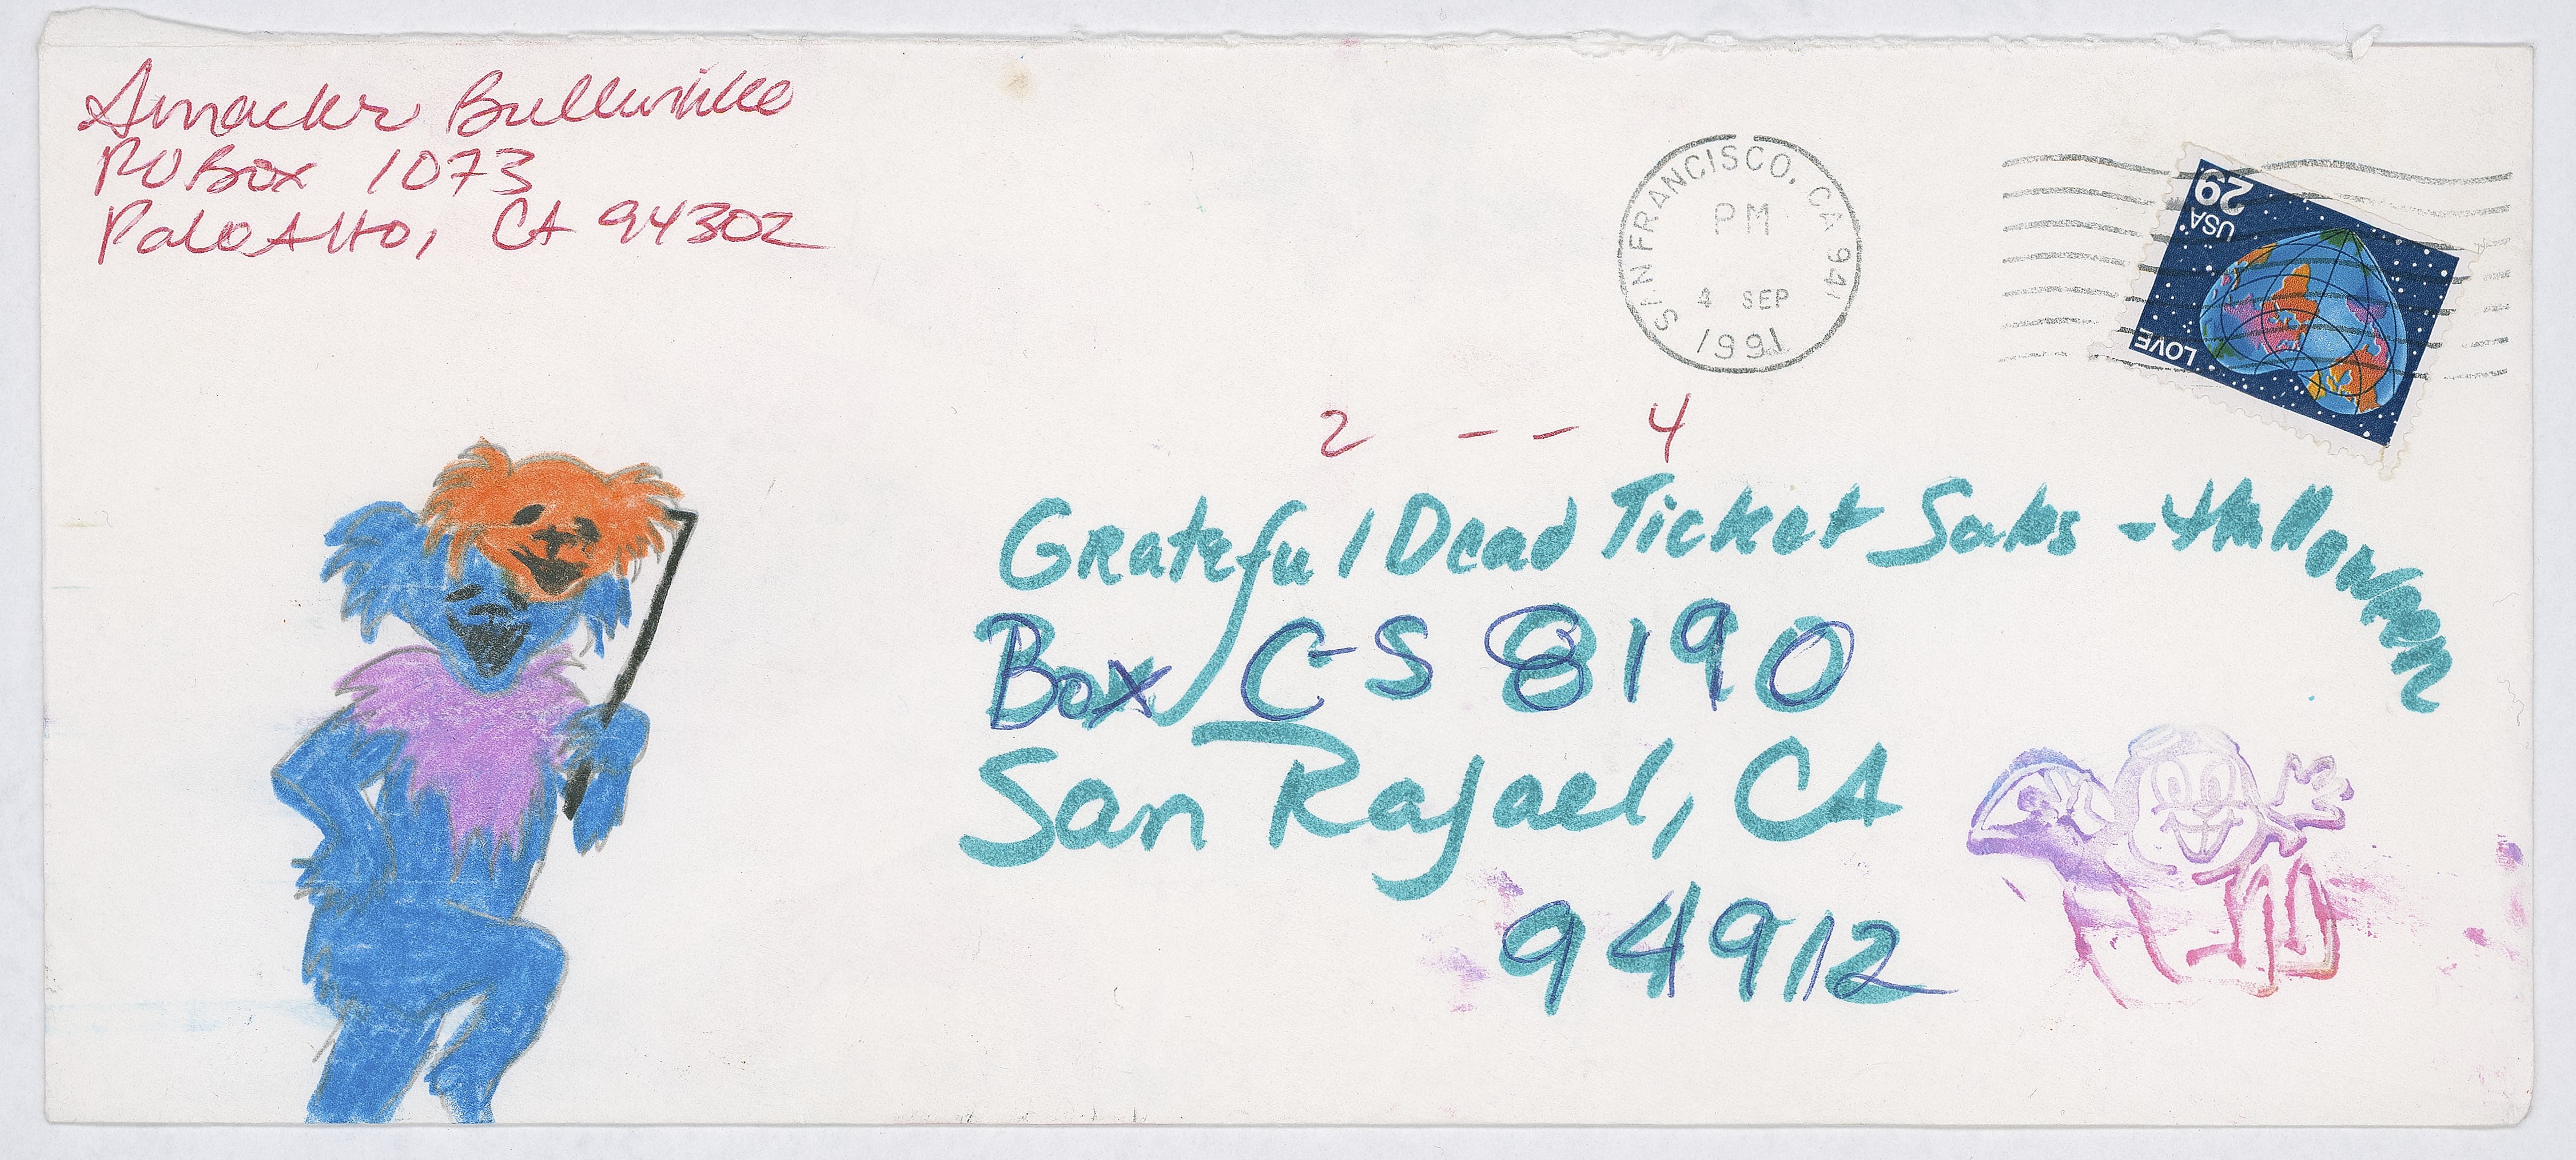 Smacker Bullwinkle
PO Box 1073
Palo Alto, CA 94302
SAN FRANCISCO, CA 941
PM
4 SEP
1991
29
USA
LOVE
2 - - 4
Grateful Dead Ticket Sales - Halloween
Box C-S 8190
San Rafael, CA
94912